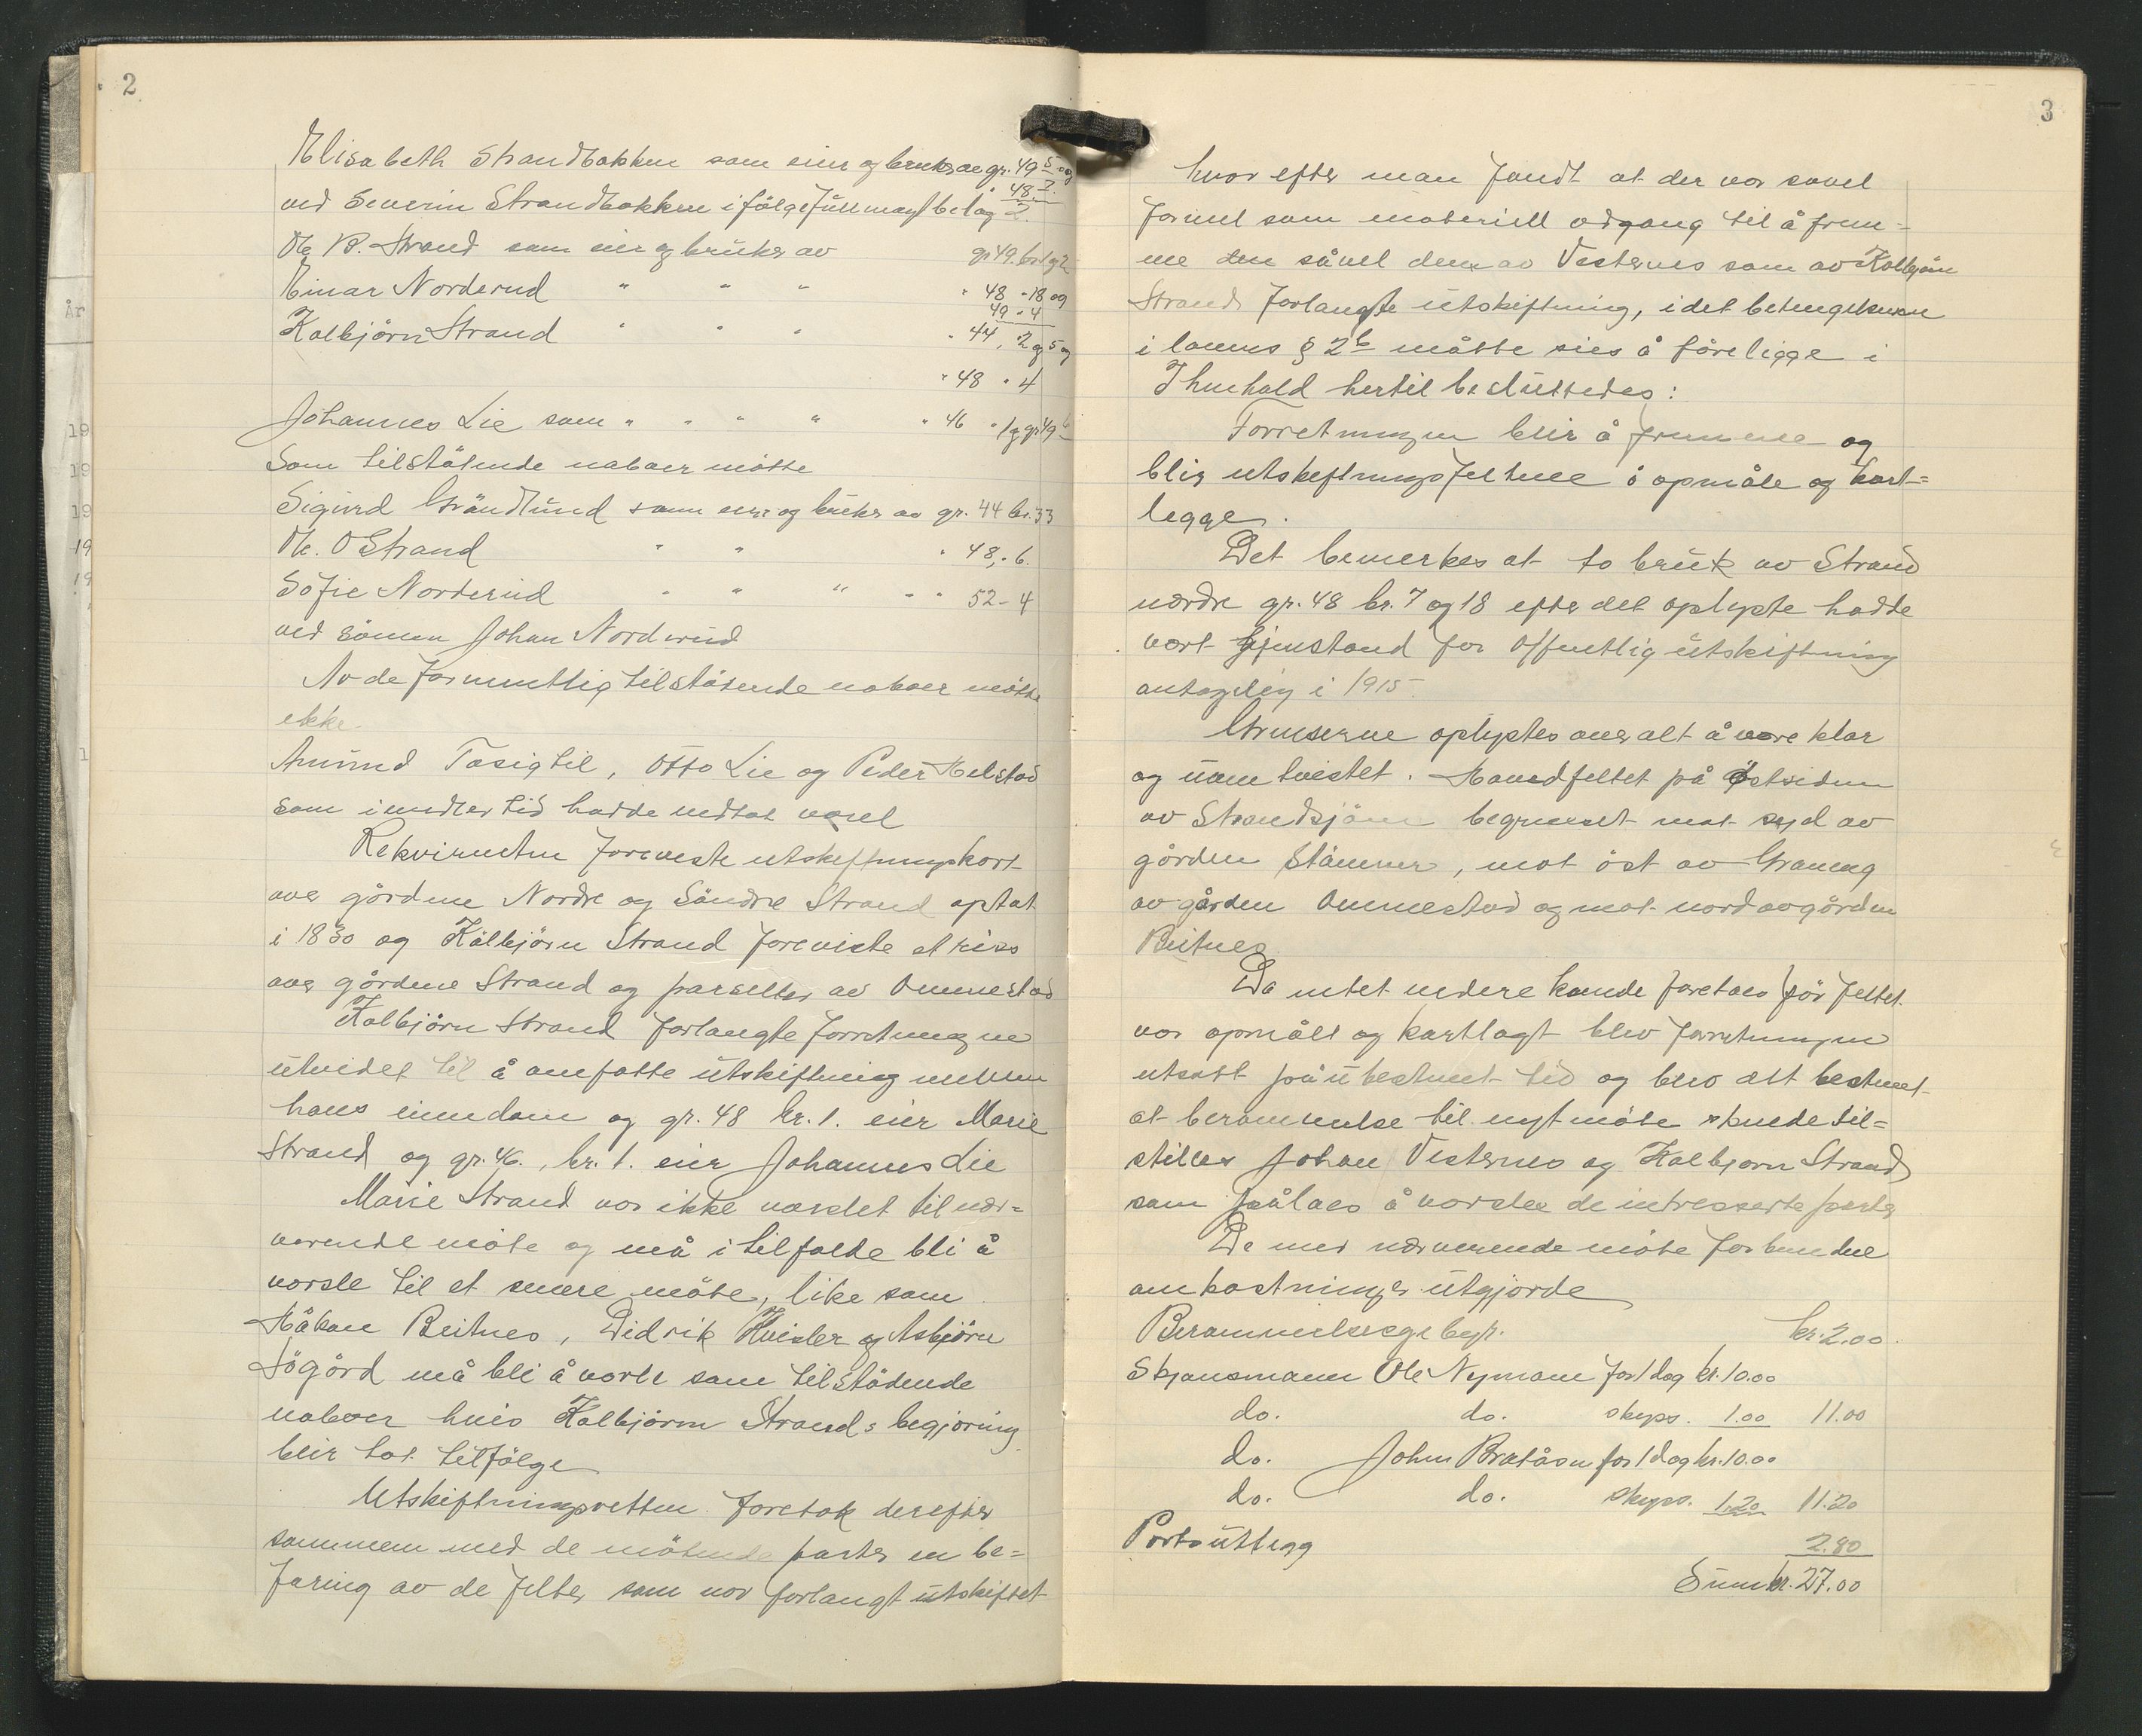 2
Elisabeth Strandbakken som eier og bruker av gr. 49 5 og
" 48 7.
ved Severin Strandbakken ifölge fullmagt bilag 2.
Ole B. Strand som eier og bruker av gr 49. br 1 og 2
Einar Norderud " " " " 48 " 18 og
49 " 4
Kolbjörn Strand " " " " 44, 2 og 5 og
" 48 " 4
Johannes Lie som " " " " " 46 " 1 og gr 49
Som tilstötende naboer mötte
Sigurd Gröndlund som eier og bruker av gr. 44 br. 33
Ole. O Strand " " " 48, " 6.
Sofie Norderud " " " " " 52 - 4
ved sönnen Johan Norderud
Av de formentlig tilstötende naboer mötte
ikke.
Amund Tasigtil, Otto Lie og Peder Helstad
som imidlertid hadde vedtat varsel
Rekvirenten foreviste utskiftningskart
over gårdene Nordre og Söndre Strand optat
i 1830 og Kolbjörn Strand foreviste et riss
over gårdene Strand og parseller av Ommestad
Kolbjörn Strand forlangte forretningene
utvidet til å omfatte utskiftning mellem
hans eiendom og gr. 48 br. 1. eier Marie
Strand og gr. 46., br. 1. eier Johannes Lie
Marie Strand var ikke varslet til nær=
værende möte og må i tilfelde bli å
varsle til et senere möte, like som
Håkon Beitnes, Didrik Kvisler og Asbjörn
Sögård må bli å varle som tilstödende
naboer hvis Kolbjörn Strands begjæring
blir tat tilfölge
Utskiftningsretten foretok derefter
sammem med de mötende parter en be=
faring av de felter som var forlangt utskiftet
3
hvor efter man fandt at der var savel
formel som materiell adgang til å frem=
me den såvel den av Vesternes som av Kolbjörn
Strand forlangte utskiftning, idet betingelserne
i lovens § 2 b måtte sies å föreligge i
Ihenhold hertil besluttedes:
Forretningen blir å fremme og
blir utskiftningsfeltene å opmåle og kart=
legge.
Det bemerkes at to bruk av Strand
nordre gr. 48 br. 7 og 18 efter det oplyste hadde
vært gjenstand for offentlig utskiftning
antagelig i 1915.
Grenserne oplystes overalt å være klar
og uomtvistet. Hovedfeltet på östsiden
av Strandsjöen begrenset mot syd av
gården Stömner, mot öst av
av gården Ommestad og mot nord av gården
Beitnes
Da intet videre kunde foretaes för feltet
var opmålt og kartlagt blev forretningen
utsatt på ubestemt tid og blev det bestemt
at berammelse til nyt möte skulde til=
stilles Johan Vesternes og Kolbjörn Strand
som pålaes å varsle de intresserte parter
De med nærværende möte forbundne
omkostninger utgjorde
Berammelsesgebyr. kr. 2.00
Skjönsmann Ole Nymoen for 1 dag kr. 10.00
do. do. skyss. 1.00 11.00
do. John Bråtåsen for 1 dag kr. 10.00
do. do. skyss. 1.20 11.20
Porto utlegg 2.80
Sum kr. 27.00